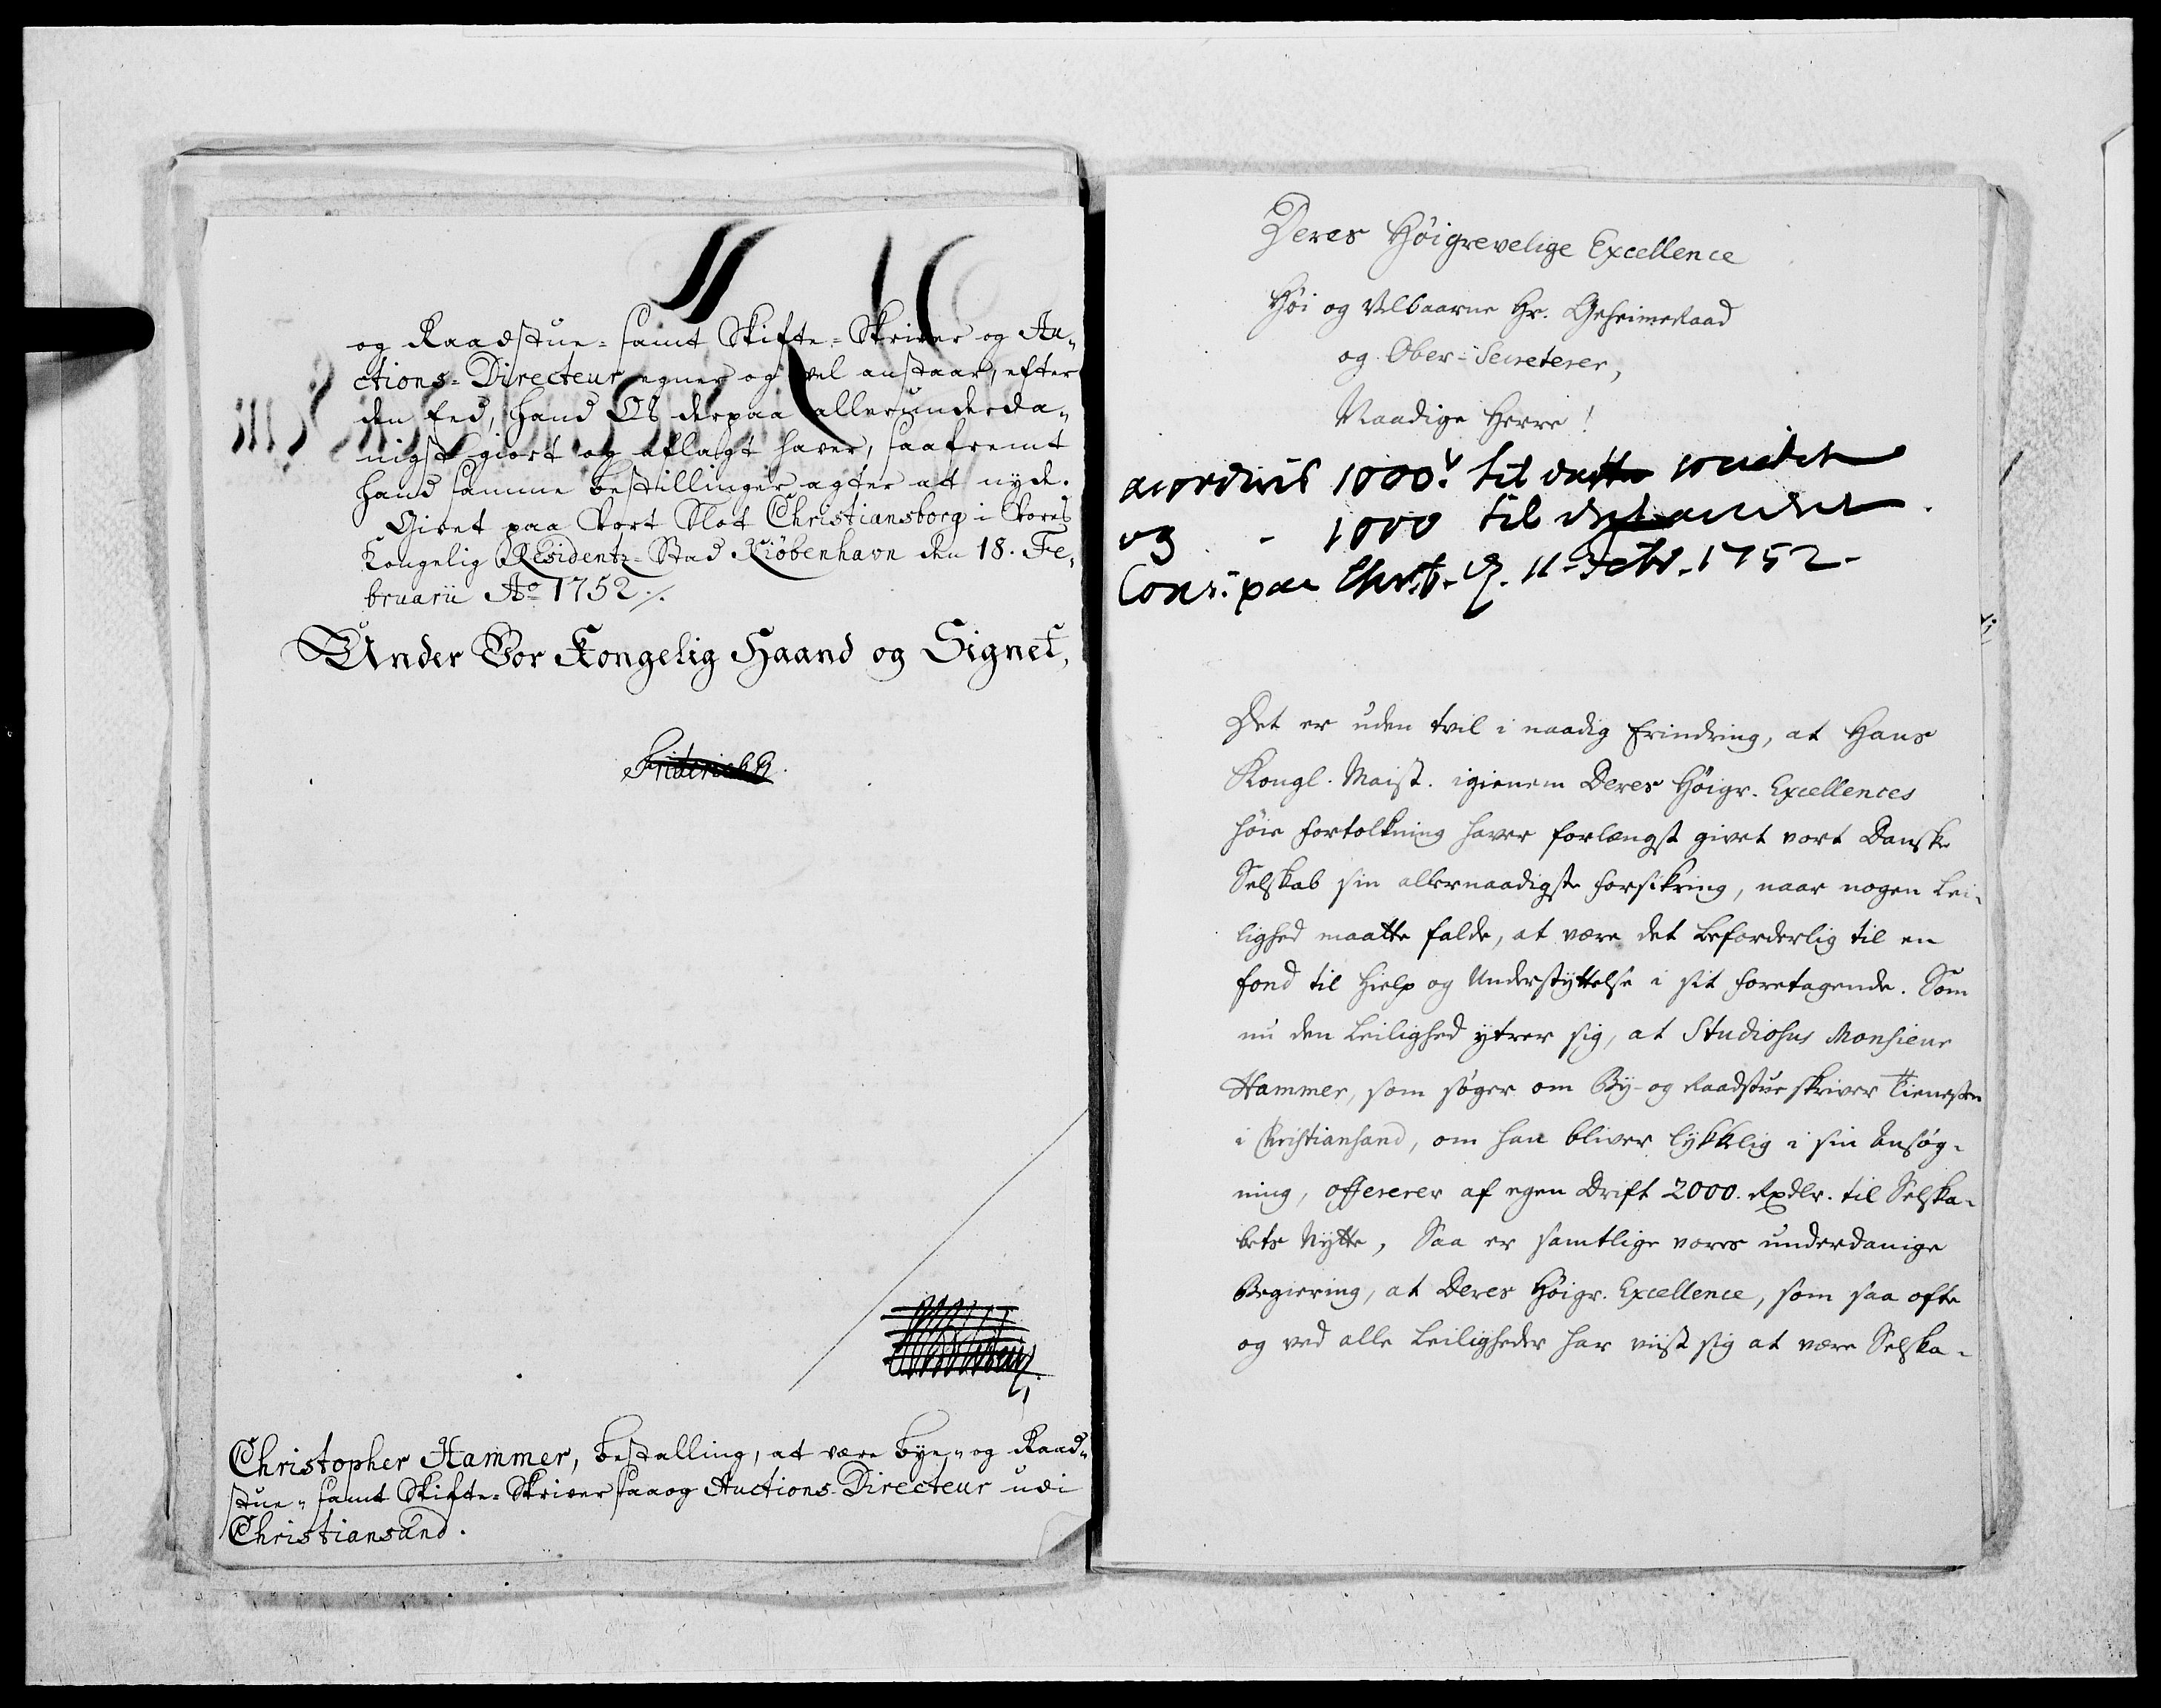 og Raadstue- samt Skifte-Skriver og Au-
ctions-Directeur egner og vel anstaar, efter
den Eed, hand Os derpaa allerunderda-
nigst giort og aflagt haver, saafremt
hand samme Bestillinger agter at nyde.
Givet paa Vort Slot Christiansborg i Vores
Kongelig Residentz-Stad Kiöbenhavn den 18. Fe-
bruarii Ao 1752 ./.
Under Vor Kongelig Haand og Signet,
Friderich R.
Christopher Hammer, Bestalling, at være Bye- og Raad-
stue- samt Skifte-Skriver saa og Auctions-Directeur udi
Christiansand.
Deres Høigrevelige Excellence
Høi og Velbaarne Hr. GeheimeRaad
og Ober-Secreterer,
Naadige Herre!
accorderes 1000 til dette
og - 1000 til det andet
Cons: paa d. 11 Febr. 1752.
Det er uden tvil i naadig Erindring, at Hans
Kongl. Maist. igienem Deres Høigr. Excellences
høie Fortolkning haver forlængst givet vort Danske
Selskab sin allernaadigste Forsikring, naar nogen Lei-
lighed maatte falde, at være det beforderlig til en
Fond til Hielp og Understyttelse i sit Foretagende. Som
nu den Leilighed ytrer sig, at Studiosus Monsieur
Hammer, som søger om By- og Raadstue skriver Tienesten
i Christiansand, om han bliver lykkelig i sin Ansøg-
ning, offererer af egen Drift 2000. Rxdlr. til Selska-
bets Nytte, Saa er samtlige vores underdanige
Begiering, at Deres Høigr. Excellence, som saa ofte
og ved alle Leiligheder har viist sig at være Selska-